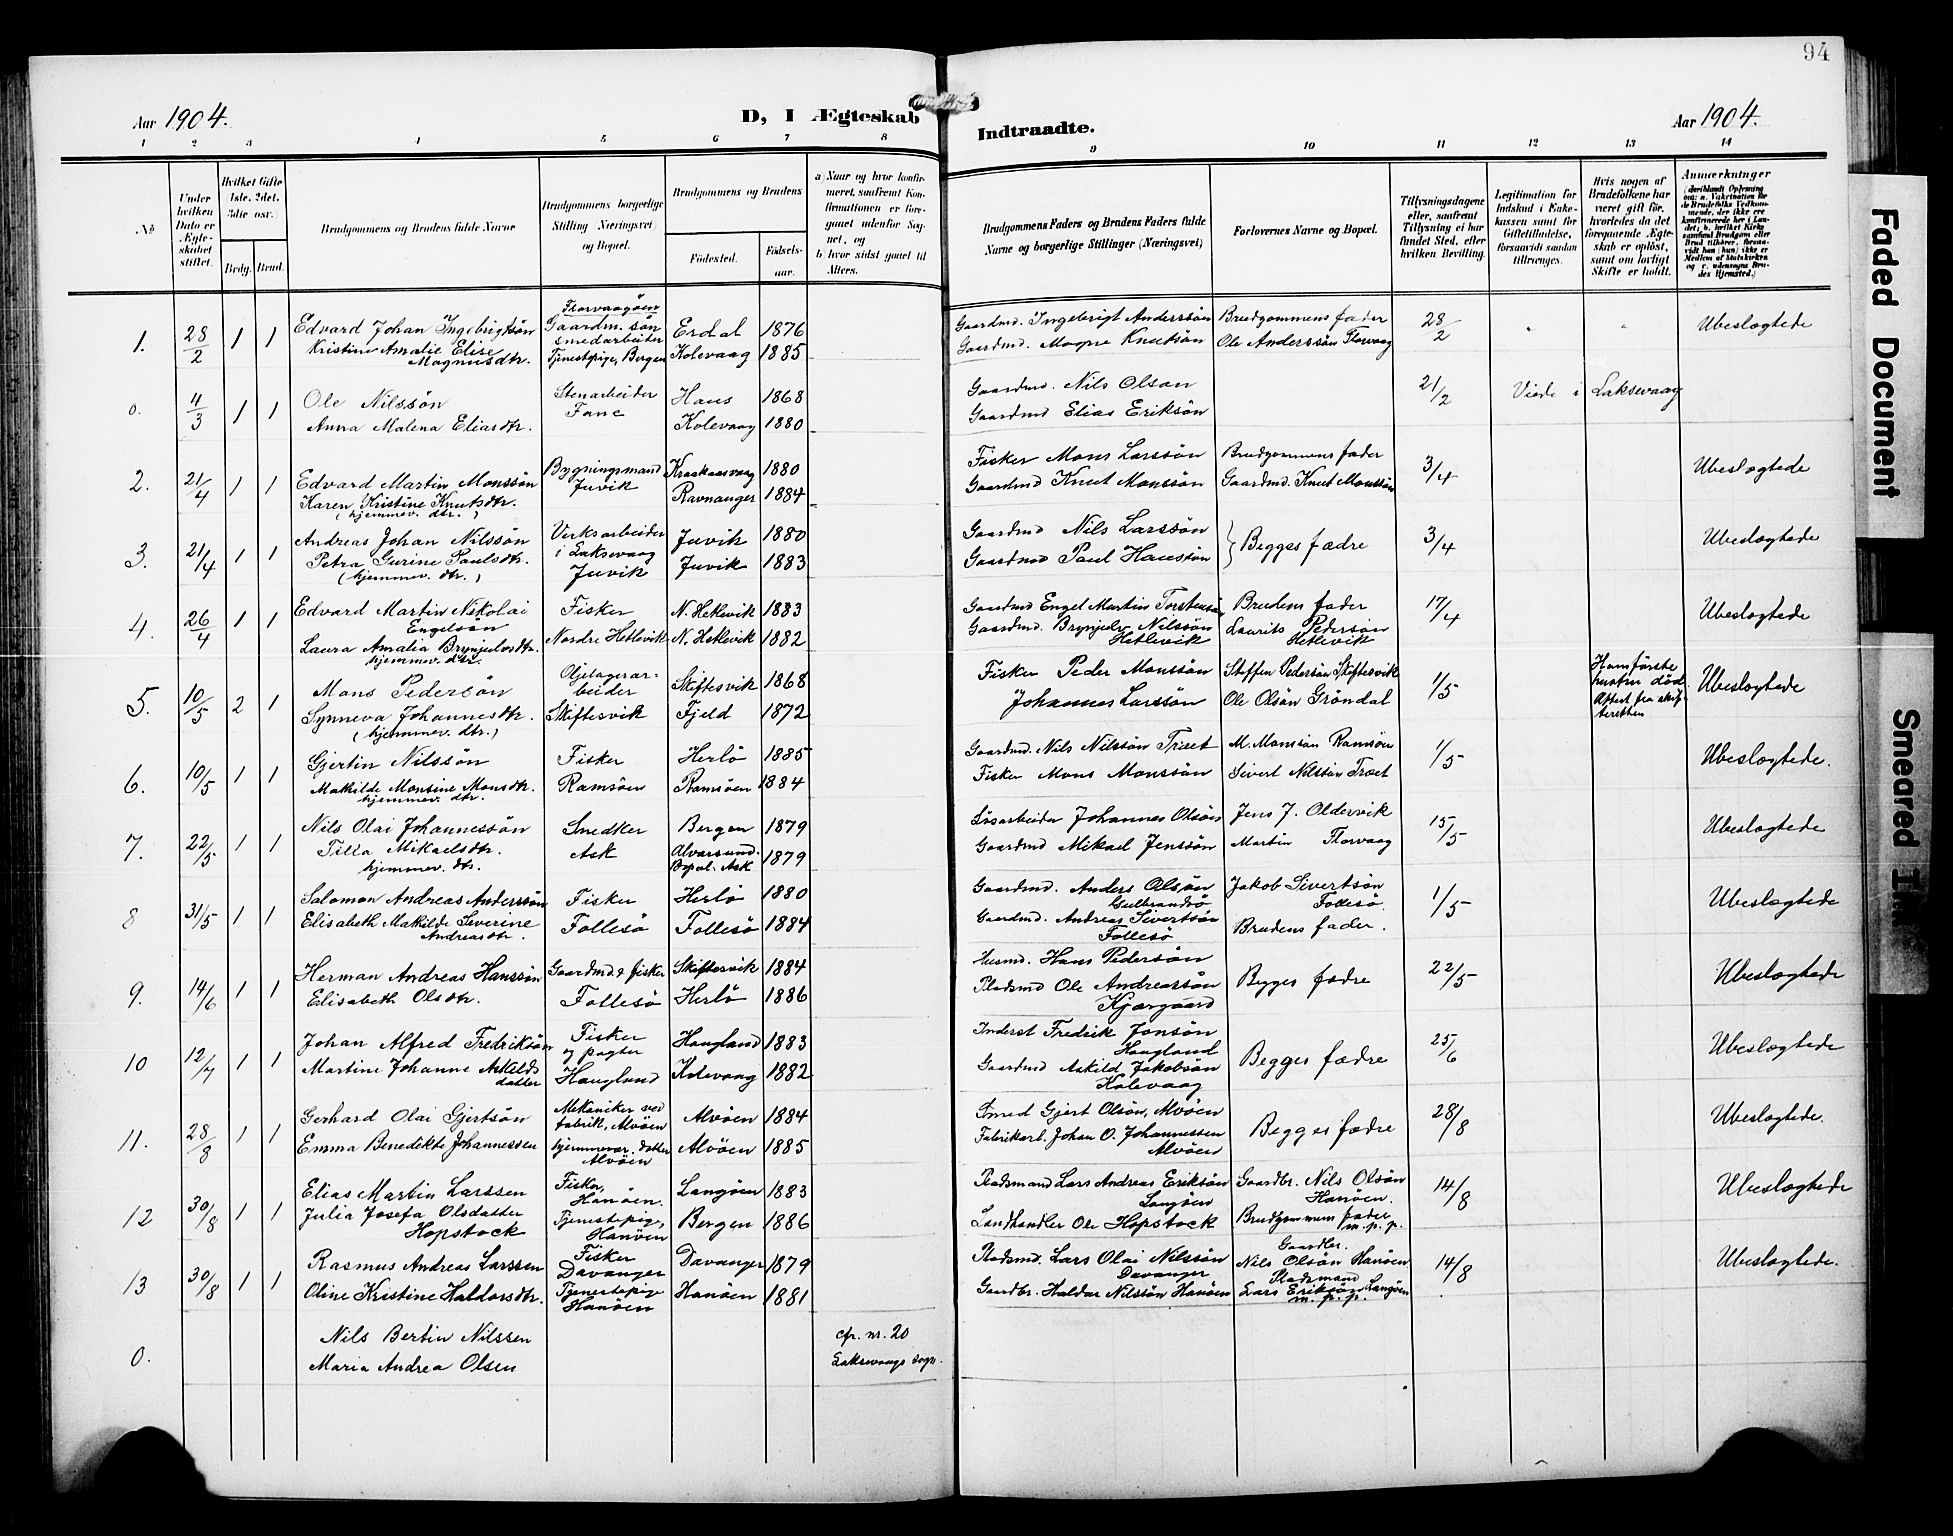 94
Aar 1904.
D, I Ægteskab
Indtraadte.
Aar 1904.
1 2 3 4 5 6 7 8
9 10 11 12 13 14
No
Under hvilken Dato er Ægteskabet stiftet.
Hvilket Gifte 1ste. 2det. 3die osv.)
Brdg. Brud.
Brudgommens og Brudens fulde Navne
Brudgommens borgerlige Stilling (Næringsvei) og Bopæl.
Brudgommens og Brudens
Fødested.
Fødselsaar.
a) Naar og hvor konfirmeret, saafremt Konfirmationen er foregaaet udenfor Sognet, og
b) hvor sidst gaaet til Alters.
Brudgommens Faders og Brudens Faders fulde Navne og borgerlige Stillinger (Næringsvei)
Forlovernes Navne og Bopæl.
Tillysningsdagene eller, saafremt Tillysning ei har fundet Sted, efter hvilken Bevilling.
Legitimation for Indskud i Enkekassen samt for Giftetilladelse, forsaavidt saadan tiltrænges.
Hvis nogen af Brudefolkene har været gift før, hvorledes da det foregaaende Ægteskab er opløst, samt om lovligt Skifte er holdt.
Anmærkninger
1. 28/2 1 1 Edvard Johan Ingebrigtsön
Kristine Amalie Elise
Magnusdtr.
Florvaagöen
Gaardm. sön
smedarbeider
Tjenestepige, Bergen
Erdal 1876
Kolevaag 1885
Gaardmd. Ingebrigt Anderssön
Gaardmd. Magne Knutsön
Brudgommens fader
Ole Anderssön Florvaag
28/2
Ubeslægtede
0. 4/3 1 1 Ole Nilssön
Anna Malena Eliasdtr.
Stenarbeider
Fane
Haus 1868
Kolevaag 1880
Gaardmd. Nils Olson
Gaardmd Elias Eriksön
21/2
Viede i Laksevaag
2. 21/4 1 1 Edvard Martin Monssön
Karen Kristine Knutsdtr.
(hjemmev. dtr.)
Bygningsmand
Juvik
Kraakaasvaag 1880
Ravnanger 1884
Fisker Mons Larssön
Gaardmd Knut Monssön
Brudgommens fader
Gaardmd. Knut Monssön
3/4
Ubeslægtede
3. 21/4 1 1 Andreas Johan Nilssön
Petra Gurine Paulsdtr.
(hjemmev. dtr.)
Verksarbeider
i Laksevaag
Juvik
Juvik 1880
Juvik 1883
Gaardmd Nils Larssön
Gaardmd Paul Hanssön
Begges fædre
3/4
Ubeslægtede
4. 26/4 1 1 Edvard Martin Nikolai
Engelsön
Laura Amalia Brynjulvsdtr.
hjemmev. dtr.
Fisker
Nordre Hetlevik
N. Hetlevik 1883
N. Hetlevik 1882
Gaardmd Engel Martin Torstensön
Gaardmd. Brynjulv Nilssön
Hetlevik
Brudens fader
Laurits Pedersön
Hetlevik
17/4
Ubeslægtede
5. 10/5 2 1 Mons Pedersön
Synneva Johannesdtr.
(hjemmev. dtr.)
Oljelagerar-
beider
Skiftesvik
Skiftesvik 1868
Fjeld 1872
Fisker Peder Monssön
Johannes Larssön
Steffen Pedersön Skiftesvik
Ole Olsön Gröndal
1/5
Hans förste
hustru död
Attest fra skif-
teretten
Ubeslægtede
6. 10/5 1 1 Gjertin Nilssön
Mathilde Monsine Monsdtr.
hjemmev. dtr.
Fisker
Ramsöen
Herlö 1885
Ramsöen 1884
Gaardmd. Nils Nilssön Træet
Fisker Mons Monssön
M. Monssön Ramsöen
Sivert Nilssön Træet
1/5
Ubeslægtede.
7. 22/5 1 1 Nils Olai Johannessön
Tilla Mikaelsdtr.
hjemmev. dtr.
Snedker
Ask
Bergen 1879
Alversund.
Bopæl. Ask 1879
Lösarbeider Johannes Olsön
Gaardmd Mikael Jenssön
Jens J. Oldervik
Martin Florvaag
15/5
Ubeslægtede
8 31/5 1 1 Salomon Andreas Anderssön
Elisabeth Mathilde Severine
Andreasdtr.
Fisker
Follesö
Herlö 1880
Follesö 1884
Gaardmd. Anders Olsön
Gulbrandsö
Gaardmd. Andreas Sivertsön
Follesö
Jakob Sivertsön
Follesö.
Brudens fader.
1/5
Ubeslægtede
9. 14/6 1 1 Herman Andreas Hanssön
Elisabeth Olsdtr.
Gaardmd. & fisker
Follesö
Skiftesvik 1884
Herlö 1886
Husmd. Hans Pedersön
Pladsmd Ole Andreassön
Kjærgaard
Begges fædre
22/5
Ubeslægtede
10 12/7 1 1 Johan Alfred Fredriksön
Martine Johanne Askilds
datter
Fisker
og pagter
Haugland
Haugland 1883
Kolevaag 1882
Inderst Fredrik Jonsön
Haugland
Gaardmd Askild Jakobsön
Kolevaag
Begges fædre
25/6
Ubeslægtede
11. 28/8 1 1 Gerhard Olai Gjertsön
Emma Benedikte Johannessen
Mekaniker ved
fabrik, Alvöen
hjemmevær. datter
Alvöen
Alvöen 1884
Alvöen 1885
Smed Gjert Olsön, Alvöen
Fabrikarb. Johan O. Johannessen
Alvöen
Begges fædre
28/8
Ubeslægtede.
12 30/8 1 1 Elias Martin Larssen
Julia Josefa Olsdatter
Hopstock
Fisker,
Hanöen.
Tjenestepig,
Hanöen
Langöen 1883
Bergen 1886
Pladsmand Lars Andreas Eriksön
Langöen
Landhandler Ole Hopstock
Gaardbr. Nils Olsön
Hanöen.
Brudgommens fader
m. p. p.
14/8
Ubeslægtede
13 30/8 1 1 Rasmus Andreas Larssen
Oline Kristine Haldorsdtr.
Fisker
Davanger
Tjenestepig
Hanöen
Davanger 1879
Hanöen 1881
Pladsmd. Lars Olai Nilssön
Davanger
Gaardbr. Haldor Nilssön Hanöen
Gaardbr.
Nils Olsön Hanöen
Pladsmand
Lars Eriksön Langöen
m. p. p.
14/8
Ubeslægtede.
0. Nils Bertin Nilssen
Maria Andrea Olsen
cfr. nr. 20
Laksevaags sogn.
Faded Document
Smeared Ink